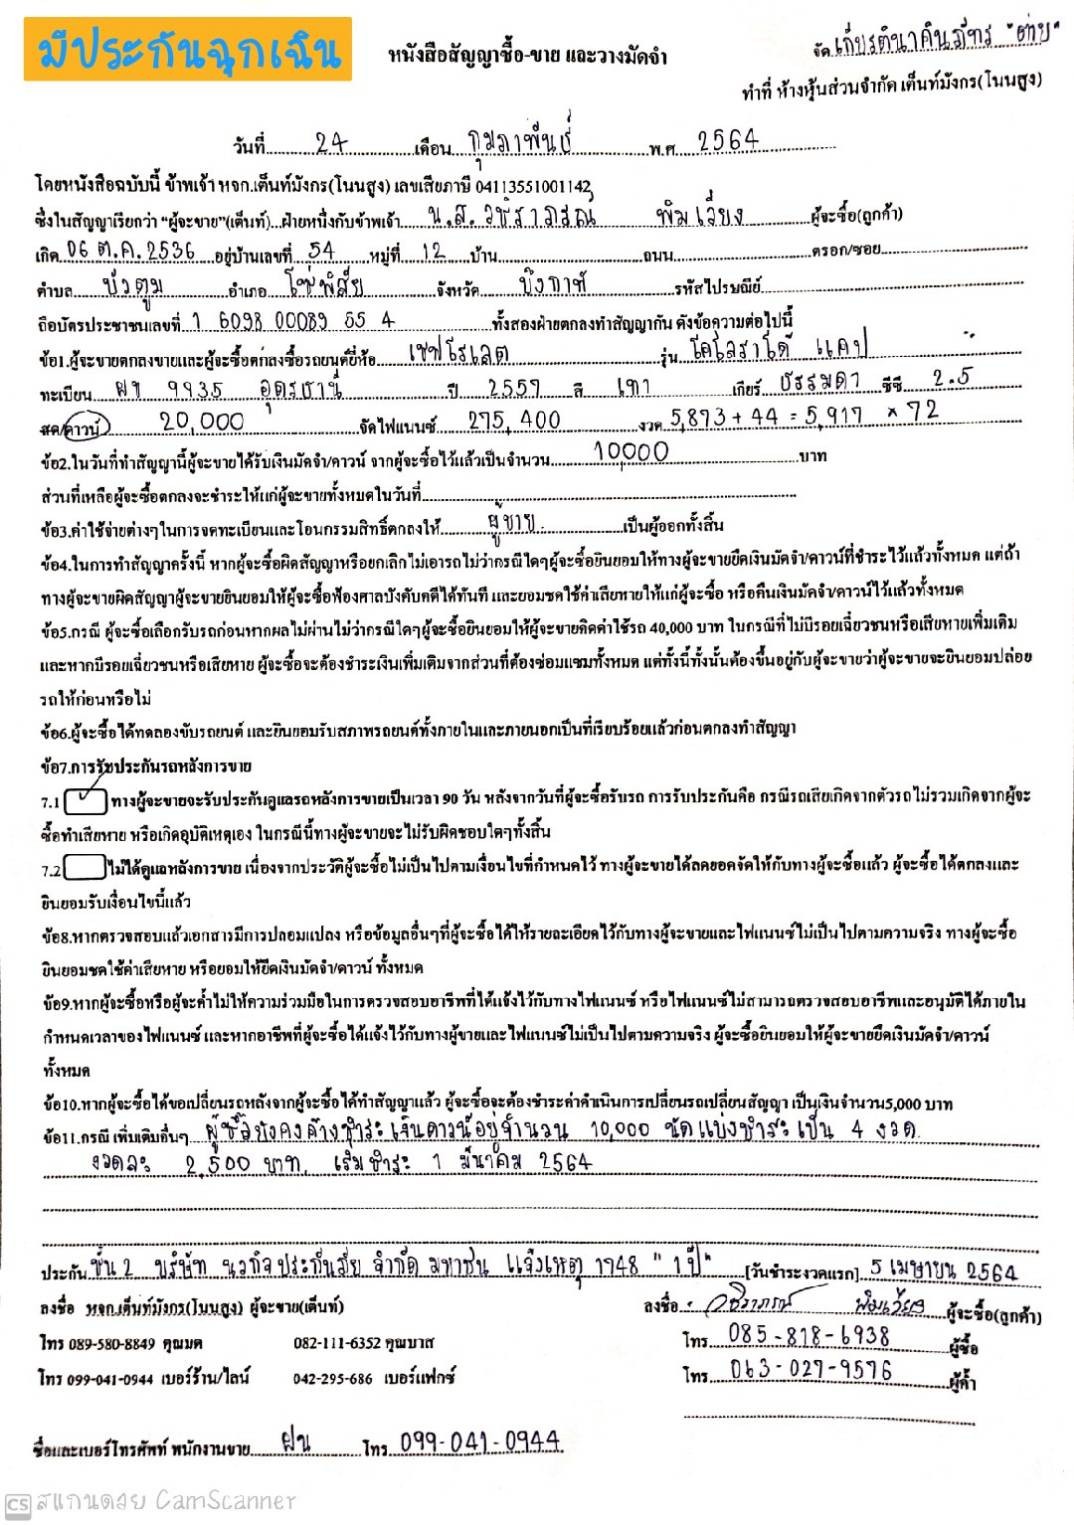 มีประกันฉุกเฉิน
หนังสือสัญญาซื้อ-ขาย และวางมัดจำ
จัด เกียรตินาคินภัทร "ต่าย"
ทำที่ ห้างหุ้นส่วนจำกัด เต็นท์มังกร(โนนสูง)
วันที่ 24 เดือน กุมภาพันธ์ พ.ศ. 2564
โดยหนังสือฉบับนี้ ข้าพเจ้า หจก.เต็นท์มังกร(โนนสูง) เลขเสียภาษี 04113551001142
ซึ่งในสัญญาเรียกว่า "ผู้จะขาย"(เต็นท์)...ฝ่ายหนึ่งกับข้าพเจ้า น.ส. วชิราภรณ์ พิมเวียง ผู้จะซื้อ(ลูกค้า)
เกิด 06 ต.ค. 2536 อยู่บ้านเลขที่ 54 หมู่ที่ 12 บ้าน ถนน ตรอก/ซอย
ตำบล บัวตูม อำเภอ โซ่พิสัย จังหวัด บึงกาฬ รหัสไปรษณีย์
ถือบัตรประชาชนเลขที่ 1 6098 00089 55 4 ทั้งสองฝ่ายตกลงทำสัญญากัน ดังข้อความต่อไปนี้
ข้อ1.ผู้จะขายตกลงขายและผู้จะซื้อตกลงซื้อรถยนต์ยี่ห้อ เชฟโรเลต รุ่น โคโลราโด้ แคป
ทะเบียน ผท 9935 อุดรธานี ปี 2557 สี เทา เกียร์ ธรรมดา ซีซี 2.5
สด/ดาวน์ 20,000 จัดไฟแนนซ์ 275,400 งวด 5,873 + 44 = 5,917 × 72
ข้อ2.ในวันที่ทำสัญญานี้ผู้จะขายได้รับเงินมัดจำ/ดาวน์ จากผู้จะซื้อไว้แล้วเป็นจำนวน 10,000 บาท
ส่วนที่เหลือผู้จะซื้อตกลงจะชำระให้แก่ผู้จะขายทั้งหมดในวันที่
ข้อ3.ค่าใช้จ่ายต่างๆในการจดทะเบียนและโอนกรรมสิทธิ์ตกลงให้ ผู้ขาย เป็นผู้ออกทั้งสิ้น
ข้อ4.ในการทำสัญญาครั้งนี้ หากผู้จะซื้อผิดสัญญาหรือยกเลิกไม่เอารถไม่ว่ากรณีใดๆผู้จะซื้อยินยอมให้ทางผู้จะขายยึดเงินมัดจำ/ดาวน์ที่ชำระไว้แล้วทั้งหมด แต่ถ้า
ทางผู้จะขายผิดสัญญาผู้จะขายยินยอมให้ผู้จะซื้อฟ้องศาลบังคับคดีได้ทันที และยอมชดใช้ค่าเสียหายให้แก่ผู้จะซื้อ หรือคืนเงินมัดจำ/ดาวน์ไว้แล้วทั้งหมด
ข้อ5.กรณี ผู้จะซื้อเลือกรับรถก่อนหากผลไม่ผ่านไม่ว่ากรณีใดๆผู้จะซื้อยินยอมให้ผู้จะขายคิดค่าใช้รถ 40,000 บาท ในกรณีที่ไม่มีรอยเฉี่ยวชนหรือเสียหายเพิ่มเติม
และหากมีรอยเฉี่ยวชนหรือเสียหาย ผู้จะซื้อจะต้องชำระเงินเพิ่มเติมจากส่วนที่ต้องซ่อมแซมทั้งหมด แต่ทั้งนี้ทั้งนั้นต้องขึ้นอยู่กับผู้จะขายว่าผู้จะขายจะยินยอมปล่อย
รถให้ก่อนหรือไม่
ข้อ6.ผู้จะซื้อได้ทดลองขับรถยนต์ และยินยอมรับสภาพรถยนต์ทั้งภายในและภายนอกเป็นที่เรียบร้อยแล้วก่อนตกลงทำสัญญา
ข้อ7.การรับประกันรถหลังการขาย
7.1 ทางผู้จะขายจะรับประกันดูแลรถหลังการขายเป็นเวลา 90 วัน หลังจากวันที่ผู้จะซื้อรับรถ การรับประกันคือ กรณีรถเสียเกิดจากตัวรถไม่รวมเกิดจากผู้จะ
ซื้อทำเสียหาย หรือเกิดอุบัติเหตุเอง ในกรณีนี้ทางผู้จะขายจะไม่รับผิดชอบใดๆทั้งสิ้น
7.2 ไม่ได้ดูแลหลังการขาย เนื่องจากประวัติผู้จะซื้อไม่เป็นไปตามเงื่อนไขที่กำหนดไว้ ทางผู้จะขายได้ลดยอดจัดให้กับทางผู้จะซื้อแล้ว ผู้จะซื้อได้ตกลงและ
ยินยอมรับเงื่อนไขนี้แล้ว
ข้อ8.หากตรวจสอบแล้วเอกสารมีการปลอมแปลง หรือข้อมูลอื่นๆที่ผู้จะซื้อได้ให้รายละเอียดไว้กับทางผู้จะขายและไฟแนนซ์ไม่เป็นไปตามความจริง ทางผู้จะซื้อ
ยินยอมชดใช้ค่าเสียหาย หรือยอมให้ยึดเงินมัดจำ/ดาวน์ ทั้งหมด
ข้อ9.หากผู้จะซื้อหรือผู้จะค้ำไม่ให้ความร่วมมือในการตรวจสอบอาชีพที่ได้แจ้งไว้กับทางไฟแนนซ์ หรือไฟแนนซ์ไม่สามารถตรวจสอบอาชีพและอนุมัติได้ภายใน
กำหนดเวลาของไฟแนนซ์ และหากอาชีพที่ผู้จะซื้อได้แจ้งไว้กับทางผู้ขายและไฟแนนซ์ไม่เป็นไปตามความจริง ผู้จะซื้อยินยอมให้ผู้จะขายยึดเงินมัดจำ/ดาวน์
ทั้งหมด
ข้อ10.หากผู้จะซื้อได้ขอเปลี่ยนรถหลังจากผู้จะซื้อได้ทำสัญญาแล้ว ผู้จะซื้อจะต้องชำระค่าดำเนินการเปลี่ยนรถเปลี่ยนสัญญา เป็นเงินจำนวน5,000 บาท
ข้อ11.กรณี เพิ่มเติมอื่นๆ ผู้ซื้อยังคงค้างชำระเงินดาวน์อยู่จำนวน 10,000 นัดแบ่งชำระเป็น 4 งวด
งวดละ 2,500 บาท เริ่มชำระ 1 มีนาคม 2564
ประกัน ชั้น 2 บริษัท นวกิจประกันภัย จำกัด มหาชน แจ้งเหตุ 1748 "1 ปี" [วันชำระงวดแรก] 5 เมษายน 2564
ลงชื่อ หจก.เต็นท์มังกร(โนนสูง) ผู้จะขาย(เต็นท์) ลงชื่อ วชิราภรณ์ พิมเวียง ผู้จะซื้อ(ลูกค้า)
โทร 089-580-8849 คุณมด 082-111-6352 คุณบาส โทร 085-818-6938 ผู้ซื้อ
โทร 099-041-0944 เบอร์ร้าน/ไลน์ 042-295-686 เบอร์แฟกซ์ โทร 063-027-9576 ผู้ค้ำ
ชื่อและเบอร์โทรศัพท์ พนักงานขาย ฝน โทร 099-041-0944
CS สแกนด้วย CamScanner